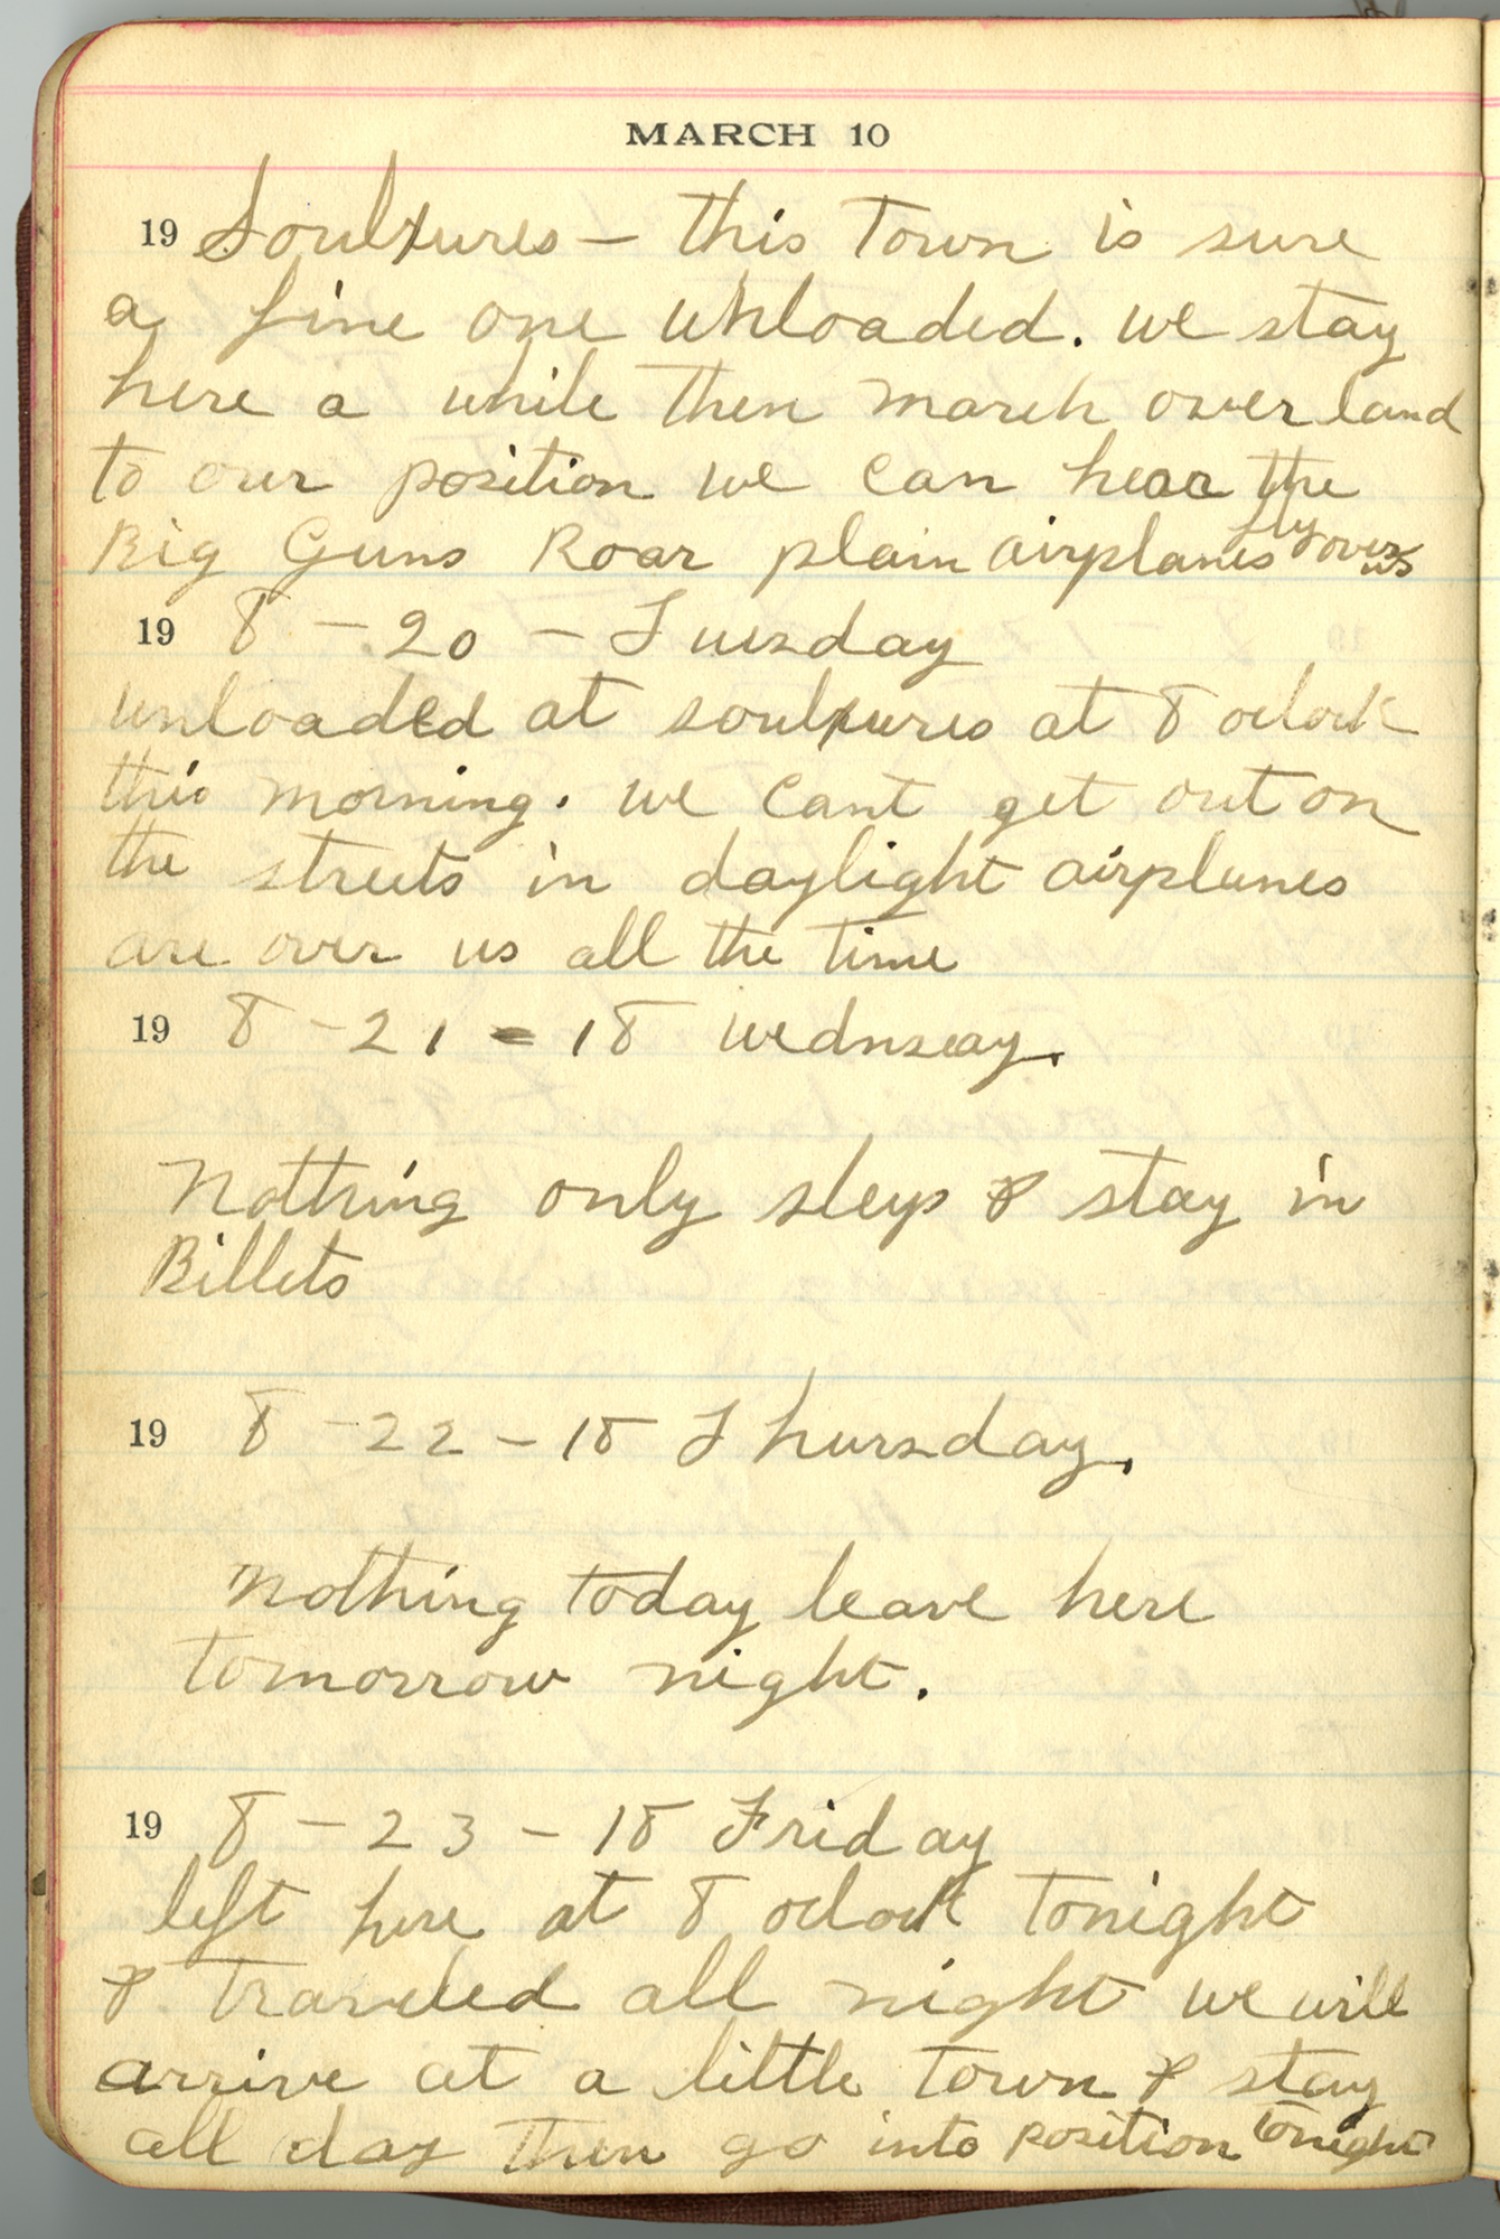 MARCH 10
19 Soulxures – this Town is sure
a fine one unloaded. we stay
here a while Then march over land
to our position we can hear the
Big Guns Roar plain airplanes fly over us
19 8 – 20 – Tuesday
unloaded at soulxures at 8 oclock
this morning. we cant get out on
the streets in daylight airplanes
are over us all the time
19 8 – 21 – 18 wednseay.
Nothing only sleep & stay in
Billets
19 8 – 22 – 18 Thursday.
nothing today leave here
tomorrow night.
19 8 – 23 – 18 Friday
left here at 8 oclock Tonight
& Traveled all night we will
arrive at a little town & stay
all day Then go into position Tonight